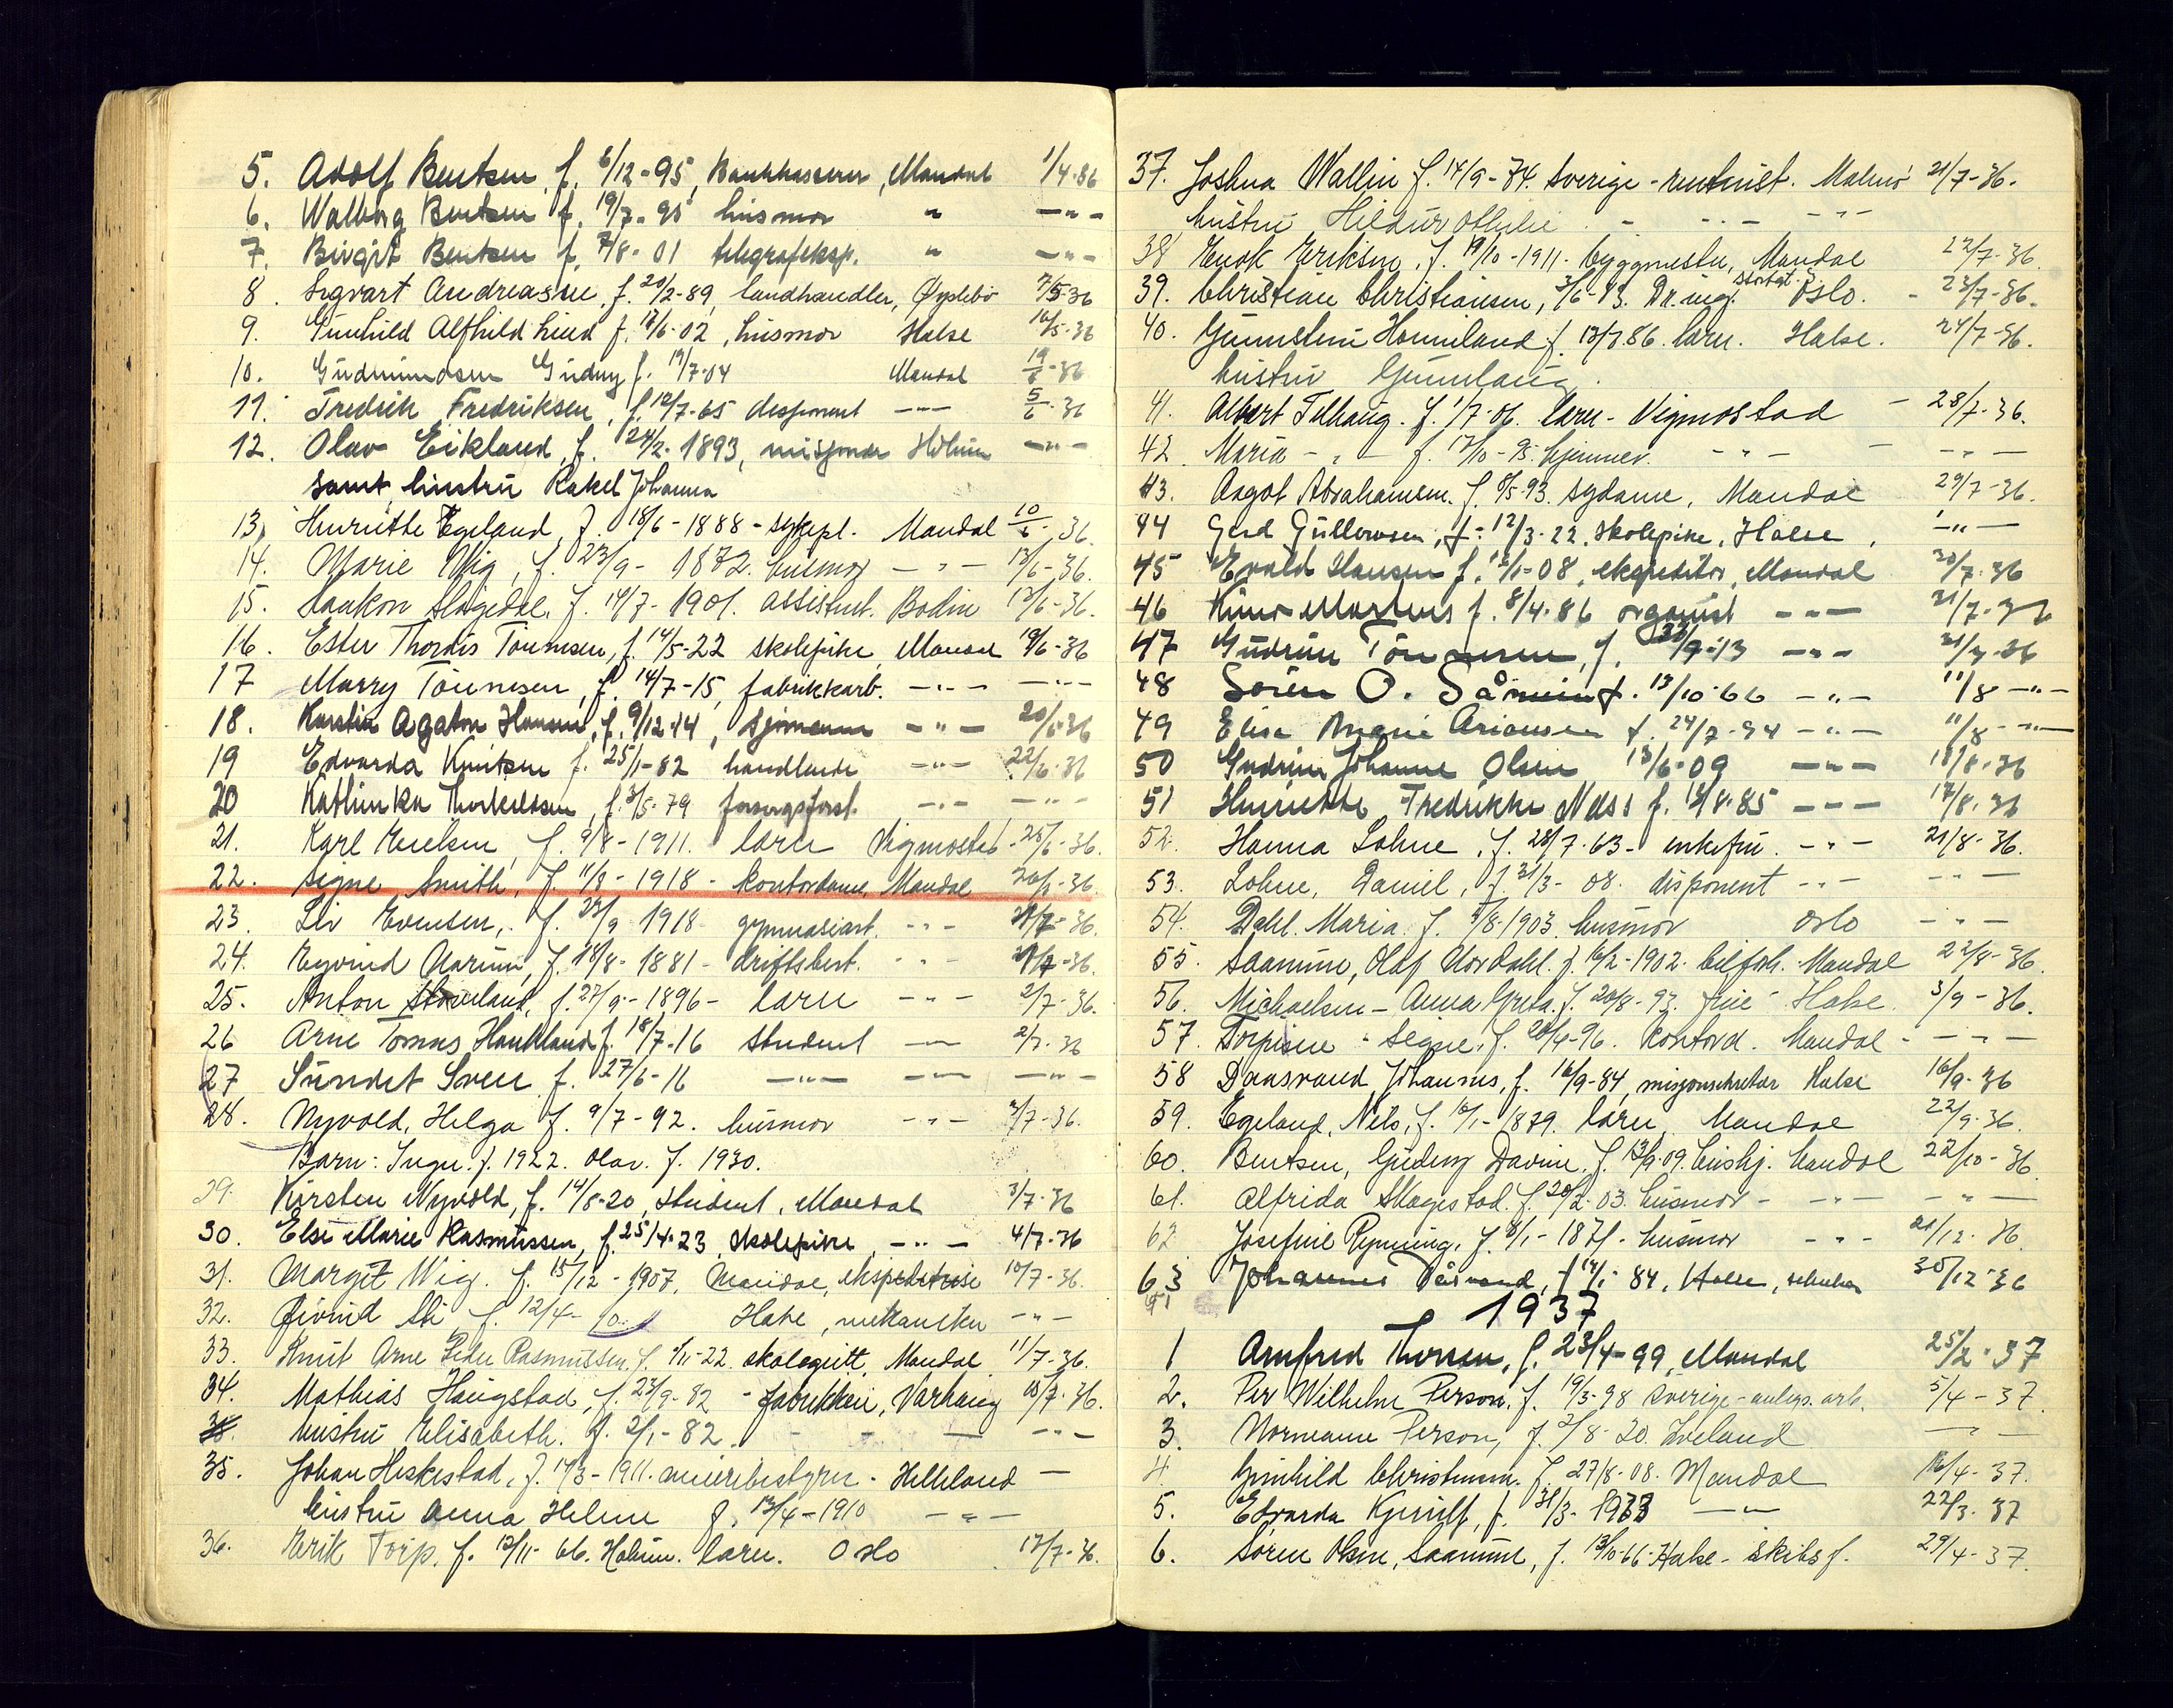 5. Adolf Bentsen, f. 6/12-95, Bankkasserer, Mandal 1/4-36
6. Walborg Bentsen f. 19/7-95 husmor " -"-
7. Birgit Bentsen f. 7/8-01 telegrafeksp. " -"-
8. Sigvart Andreassen, f. 20/2-89, landhandler, Øyslebö 7/5-36
9. Gunhild Alfhild Lind f. 17/6-02, husmor Halse 16/5-36
10. Gudmundsen Gudny f. 19/7-04 Mandal 19/5-36
11. Fredrik Fredriksen, f. 12/7-65 disponent -"- 5/6-36
12. Olav Eikland, f. 24/2-1893, misjonær Holum -"-
samt hustru Rakel Johanna
13. Henriette Egeland, f. 18/6-1888 - sykepl. Mandal 10/6 36.
14. Marie Wig, f. 23/9-1872. husmor - " - 13/6-36.
15. Haakon Slögedal. f. 14/7-1901. assistent. Bodin 12/6-36.
16. Ester Thordis Tönnesen, f. 14/5-22 skolepike Mandal 19/6-36
17 Marry Tönnesen, f. 14/7-15, fabrikkarb. -"- -"-
18. Karstin Agaton Hansen, f. 9/12-14, sjömann -"- 20/6-36
19 Edvarda Knutsen f. 25/1-82 handlende -"- 22/6-36
20 Kathinka Thorkildsen, f. 3/5-79 forsorgsforst. -"- -"-
21. Karl Emilsen, f. 9/8-1911. lærer Vigmostad - 25/6-36.
22. Signe Smith, f. 11/8-1918 - kontordame, Mandal 26/6-36.
23. Liv Evensen, f. 23/9 1918 gymnasiast. -"- 1/7-36.
24. Eyvind Aarum, f. 18/8-1881 - driftsbest. -"- 1/7-36.
25. Anton Skoveland, f. 27/9-1896 - lærer -"- 2/7-36.
26 Arne Tomas Haukland f. 18/7-16 student -"- 2/7-36
27 Sundet Svein f. 27/6-16 -"- -"- -"-
28. Nyvold, Helga f. 9/7-92. husmor -"- 2/7-36.
Barn: Inger. f. 1922. Olav. f. 1930.
29. Kirsten Nyvold, f. 14/8-20, student, Mandal 3/7-36
30. Else Marie Rasmussen, f. 25/4-23 skolepike, -"- 4/7-36
31. Margit Wig. f. 15/12-1907. Mandal, ekspeditrise 10/7-36.
32. Øivind Ski f. 12/4-10. Halse, mekaniker -"-
33. Knut Arne Peder Rasmussen, f. 1/11-22. skolegutt, Mandal 11/7-36.
34. Mathias Haugstad, f. 23/9-82 - fabrikkeier, Varhaug 10/7-36.
hustru Elisabeth. f. 2/1-82. - - -"-
35. Johan Heskestad, f. 17/3-1911. meieribestyrer - Helleland -
hustru Anna Helene f. 13/4-1910 -"-
36. Erik Torp. f. 12/11-66. Holum. lærer. Oslo 17/7-36.
37. Joshua Wallin f. 14/9-74. Sverige - rentenist. Malmö 21/7-36.
hustru Hildur Othelie - -"- -"-
38 Enok Eriksen, f. 19/10-1911. byggmester, Mandal 22/7-36.
39. Christian Christiansen, 3/6-13. Dr. ing. Oslo. - 23/7-36.
40. Gunnstein Homeland f. 13/7 86. lærer. Halse. 24/7-36.
hustru Gunnlaug.
41. Albert Tilhaug. f. 1/7-06. lærer - Vigmostad - 28/7-36.
42. Maria -"- f. 17/10-95. hjemmev. -"- -"-
43. Aagot Abrahamsen. f. 8/5-93. sydame, Mandal 29/7-36.
44 Gerd Gullevsen, f. 12/3-22, skolepike, Halse, -"-
45 Evald Hansen f. 12/1-08, ekspeditör, Mandal 30/7-36
46 Martens f. 8/4-86 organist -"- 31/7-36
47 Gudrun Tönnesen, f. 23/9-13 -"- 31/7-36
48 Sören O. Sånum f. 13/10-66 -"- 11/8 -"-
49 Elise Marie Ariansen f. 24/7-94 -"- 11/8 -"-
50 Gudrun Johanne Olsen 13/6-09 -"- 13/8-36
51 Henriette Fredrikke Næss f. 12/8-85 -"- 17/8-36
52. Hanna Lohne, f. 28/7-63 - enkefru. -"- 21/8-36.
53. Lohne, Daniel, f. 31/3-08. disponent -"- -"-
54. Dahl. Maria f. 4/8-1903. husmor Oslo -"-
55. Saanum, Olaf Nordahl. f. 16/2-1902. bilfork. Mandal 22/8-36.
56. Michaelsen - Anna Greta. f. 20/8-93. frue - Halse. 3/9-36.
57. Torpisen - Signe. f. 20/4-96. kontord. Mandal - -"-
58 Daasvand Johannes, f. 14/9-84, misjonssekretær Halse 16/9-36
59. Egeland, Nils, f. 10/1-1879. lærer, Mandal 22/9-36.
60. Bentsen, Gudny Davine. f. 13/9-09. hushj. Mandal 22/10-36.
61. Alfrida Skagestad. f. 20/2-03. husmor - -"- -"-
62 Josefine Rynning, f. 8/1-1871. husmor -"- 21/12-36.
63 Johannes Dåsvand, f 14/9-84, Halse, sekretær 30/12-36
1937
1 Arnfred Thorsen, f. 23/4-99, Mandal 25/2-37
2. Per Wilhelm Person. f. 19/3-98 Sverige - anlegs. arb. 5/4-37.
3. Normanne Person, f. 2/8-20. Iveland -"-
4 Gunhild Christensen. f. 27/8-08. Mandal 16/4-37.
5. Edvarda Kjerulf, f. 31/3-1933 -"- 22/3-37
6. Sören Olsen, Saanum, f. 13/10-66 - Halse - skibsf. 29/4-37.